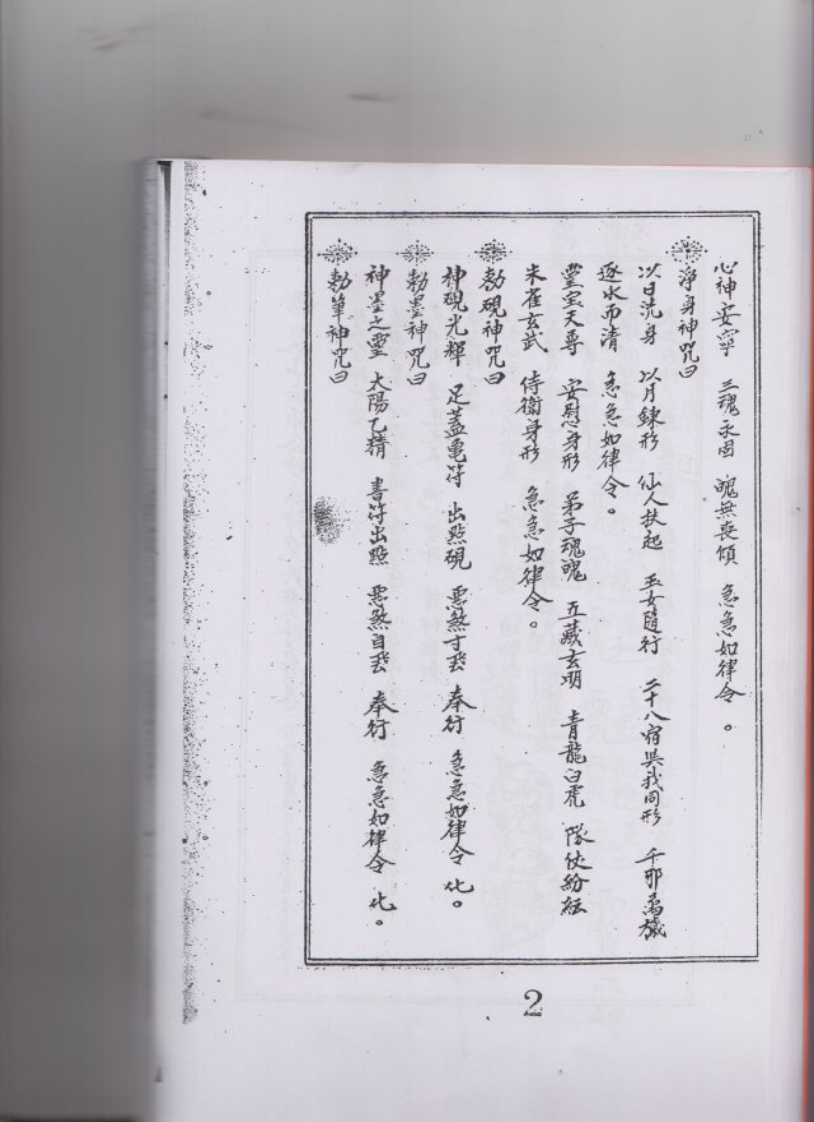 心神安寧 三魂永固 魄無喪傾 急急如律令。
淨身神咒曰
以日洗身 以月鍊形 仙人扶起 玉女隨行 二十八宿與我同形 千邪萬穢
逐水而清 急急如律令。
靈宝天尊 安慰身形 弟子魂魄 五藏玄明 青龍白虎 隊伏紛紜
朱雀玄武 侍衛身形 急急如律令。
勅硯神咒曰
神硯光輝 足蓋亀符 出點硯 悪煞 奉行 急急如律令 化。
勅墨神咒曰
神墨之靈 太陽乙精 書符出點 悪煞自 奉行 急急如律令 化。
勅筆神咒曰
2